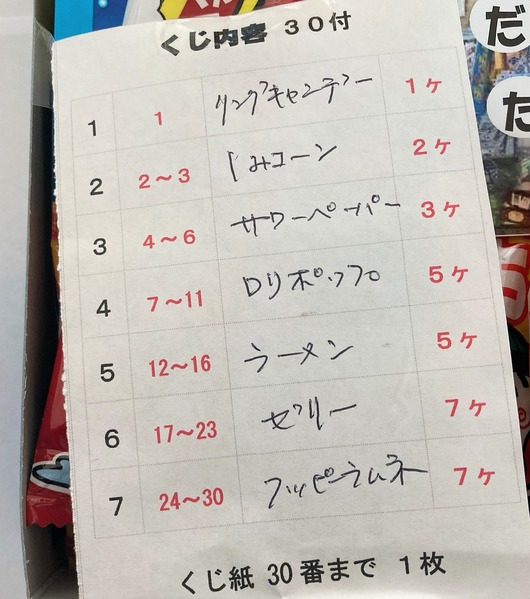 くじ内容 30付
1 1 リングキャンデー 1ケ
2 2～3 しみコーン 2ケ
3 4～6 サワーペーパー 3ケ
4 7～11 ロリポップ 5ケ
5 12～16 ラーメン 5ケ
6 17～23 ゼリー 7ケ
7 24～30 クッピーラムネ 7ケ
くじ紙 30番まで 1枚
だ
た